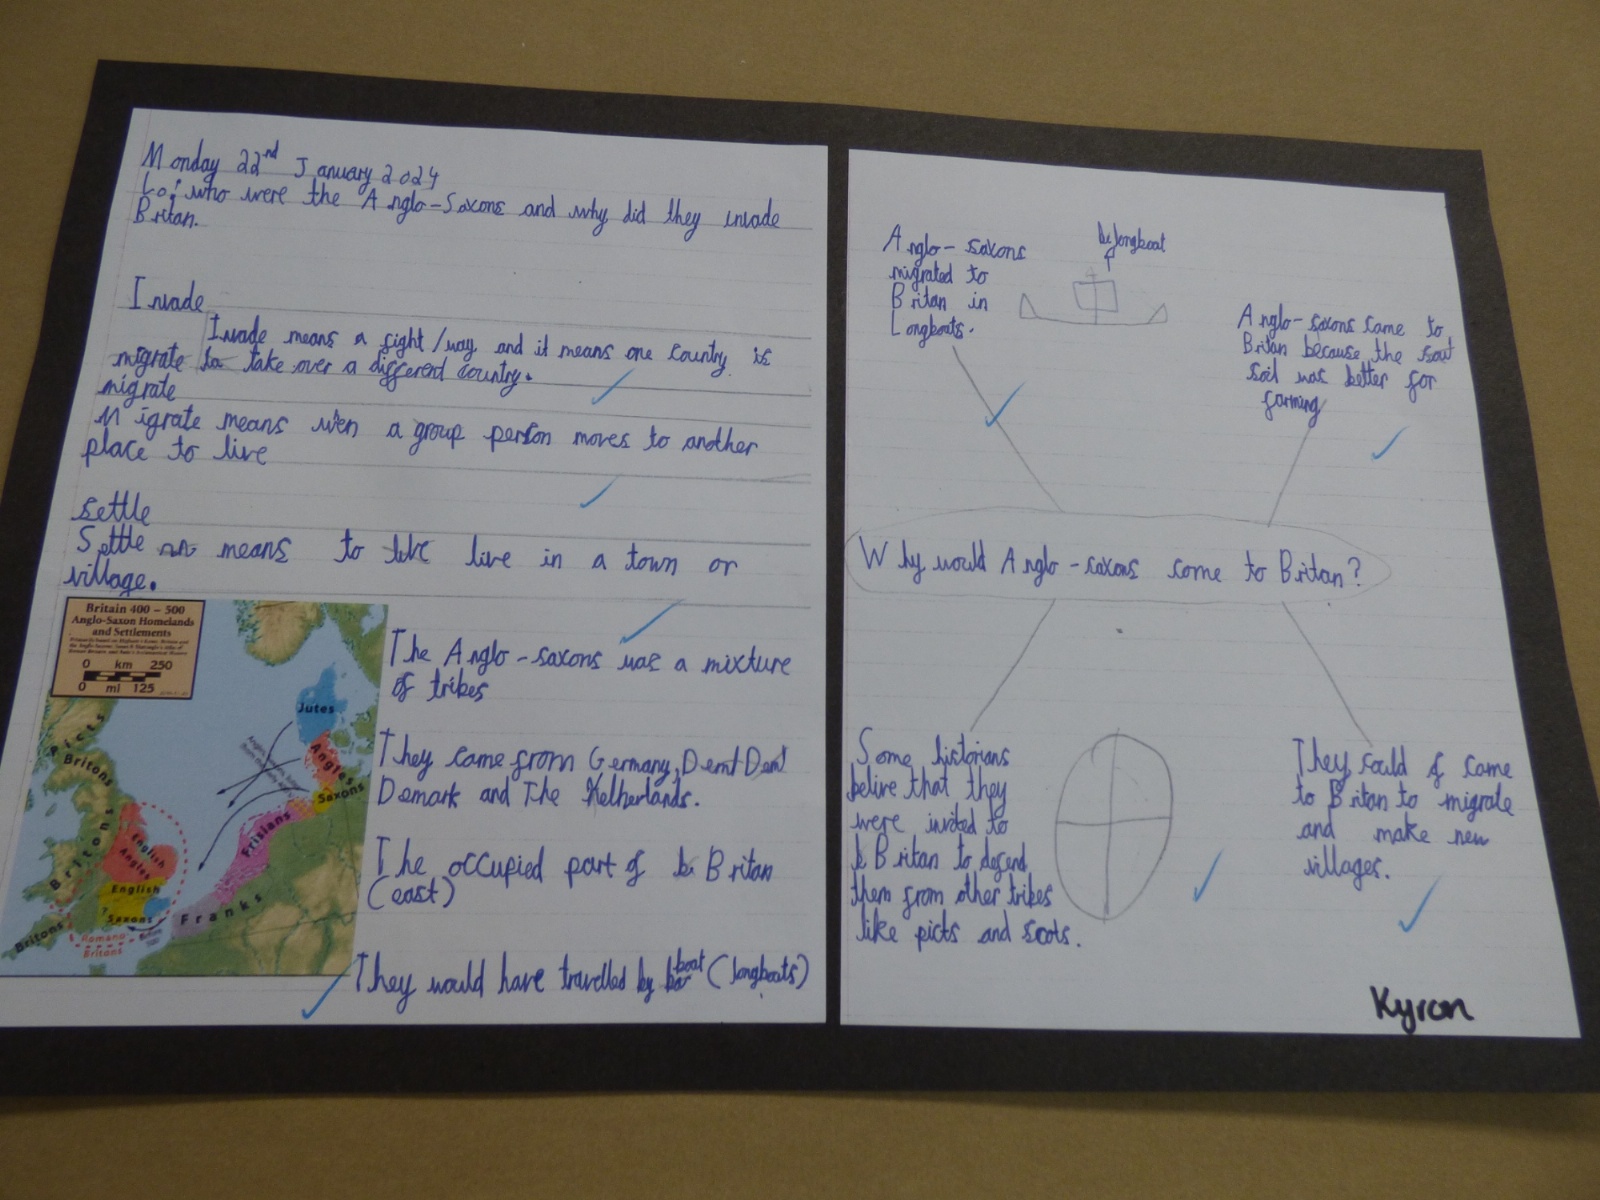 Monday 22nd January 2024
Lo: who were the Anglo-Saxons and why did they invade
Britan.
Invade
Invade means a fight/way and it means one country is
migrate to take over a differend country.
migrate
Migrate means wen a group person moves to another
place to live
settle
Settle means to live in a town or
village.
Britain 400 – 500
Anglo-Saxon Homelands
and Settlements
0 km 250
0 mi 125
Picts
Britons
Britons
Britons
Jutes
Angles
Saxons
Frisians
Franks
English
Angles
English
Saxons
Romano-
Britons
The Anglo-saxons was a mixture
of tribes
They came from Germany,
Demark and The Netherlands.
The occupied part of b Britan
(east)
They would have travelled by boat (longboats)
Anglo-saxons
migrated to
Britan in
Longboats.
longboat
Anglo-saxons came to
Britan because the
soil was better for
farming
Why would Anglo-saxons come to Britan?
Some historians
belive that they
were invited to
b Britan to defend
them from other tribes
like picts and scots.
They could of come
to Britan to migrate
and make new
villages.
Kyron